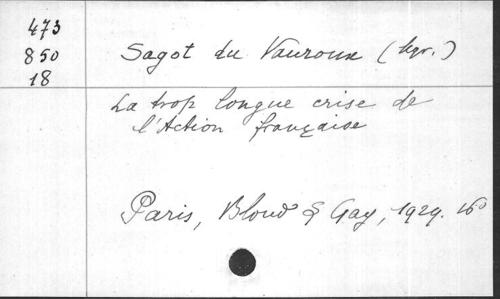 473
850
18
Sagot du Vauroux (Mgr.)
La trop longue crise de
l'Action française
Paris, Bloud & Gay, 1929. 16°